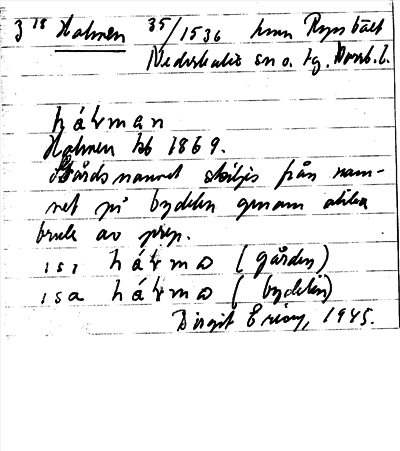 3 18 Holmen 35/1536 hmn Ryssbält
Nederkalix sn o. tg. Norrb. l.
hálman
Holmen hb 1869.
Gårdsnamnet skiljs från nam-
net på bydelen genom olika
bruk av prep.
isı hálma (gården)
isa hálma (bydelen)
Birgit Ericson, 1945.